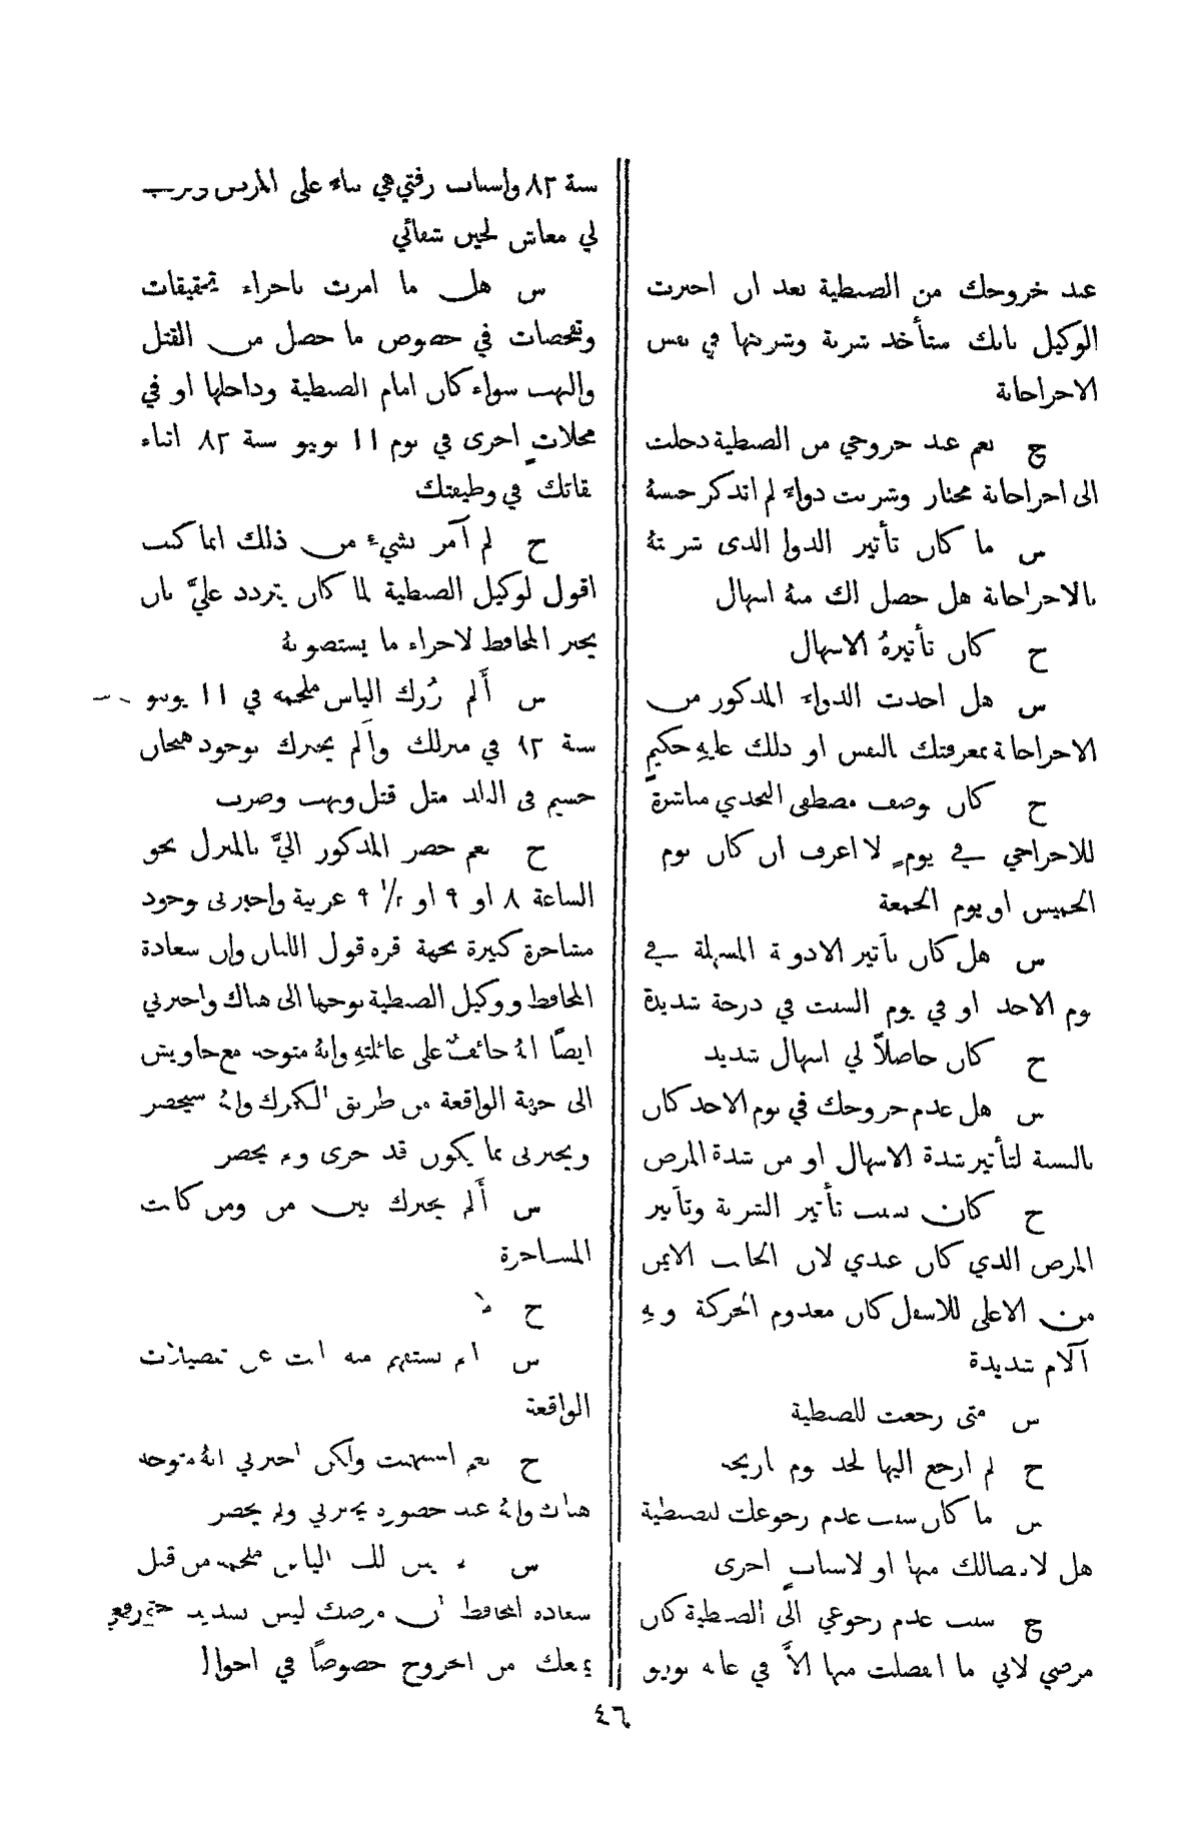 عند خروجك من الضبطية بعد ان اخبرت
الوكيل بانك ستأخذ شربة وشربتها في نفس
الاجزاخانة
ج نعم عند خروجي من الضبطية دخلت
الى اجزاخانة مختار وشربت دواءً لم اتذكر جنسهُ
س ما كان تأثير الدوا الذى شربتهُ
بالاجزاخانة هل حصل لك منهُ اسهال
ج كان تأثيرهُ الاسهال
س هل اخذت الدواء المذكور من
الاجزاخانة بمعرفتك بالنفس او دلك عليهِ حكيمٍ
ج كان بوصف مصطفى النجدي مباشرة
للاجزاجي في يومٍ لا اعرف ان كان يوم
الخميس او يوم الجمعة
س هل كان تأثير الادوية المسهلة في
يوم الاحد او في يوم السبت في درجة شديدة
ج كان حاصلاً لي اسهال شديد
س هل عدم خروجك في يوم الاحد كان
بالنسبة لتأثير شدة الاسهال او من شدة المرض
ج كان بسبب تأثير الشربة وتأثير
المرض الذي كان عندي لان الجانب الايمن
من الاعلى للاسفل كان معدوم الحركة وبهِ
آلام شديدة
س متى رجعت للضبطية
ج لم ارجع اليها لحد يوم تاريخه
س ما كان سبب عدم رجوعك للضبطية
هل لانفصالك منها او لاسبابٍ اخرى
ج سبب عدم رجوعي الى الضبطية كان
مرضي لاني ما انفصلت منها الاَّ في غاية يونيو
سنة ٨٢ واسباب رفتي هي بناءً على المرض وترتب
لي معاش لحين شفائي
س هل ما امرت باجراء تحقيقات
وتفحصات في خصوص ما حصل من القتل
والنهب سواء كان امام الضبطية وداخلها او في
محلاتٍ اخرى في يوم ١١ يونيو سنة ٨٢ اثناء
بقائك في وظيفتك
ج لم آمر بشيءٍ من ذلك انما كنت
اقول لوكيل الضبطية لما كان يتردد عليَّ بان
يخبر المحافظ لاجراء ما يستصوبهُ
س أَلم يزُرك الياس ملحمه في ١١ يونيو
سنة ٨٢ في منزلك وأَلم يخبرك بوجود هيجان
جسيم فى البلد مثل قتل ونهب وضرب
ج نعم حضر المذكور اليَّ بالمنزل نحو
الساعة ٨ او ٩ او ١/٢ ٩ عربية واخبرنى بوجود
مشاجرة كبيرة بجهة قره قول اللبان وان سعادة
المحافظ ووكيل الضبطية توجها الى هناك واخبرني
ايضًا انهُ خائفٌ على عائلتهِ وانهُ متوجه مع جاويش
الى جهة الواقعة من طريق الكمرك وانهُ سيحضر
ويخبرنى بما يكون قد جرى ولم يحضر
س أَلم يخبرك بين من ومن كانت
المشاجرة
ج لا
س لم تستفهم منه انت عن تفصيلات
الواقعة
ج نعم استفهمت ولكن اخبرني انهُ متوجه
هناك وانهُ عند حضوره يخبرني ولم يحضر
س لك الياس ملحمه من قبل
سعادة المحافظ ان مرضك ليس شديد حتى
يمنعك من الخروج خصوصًا في احوال
٤٦